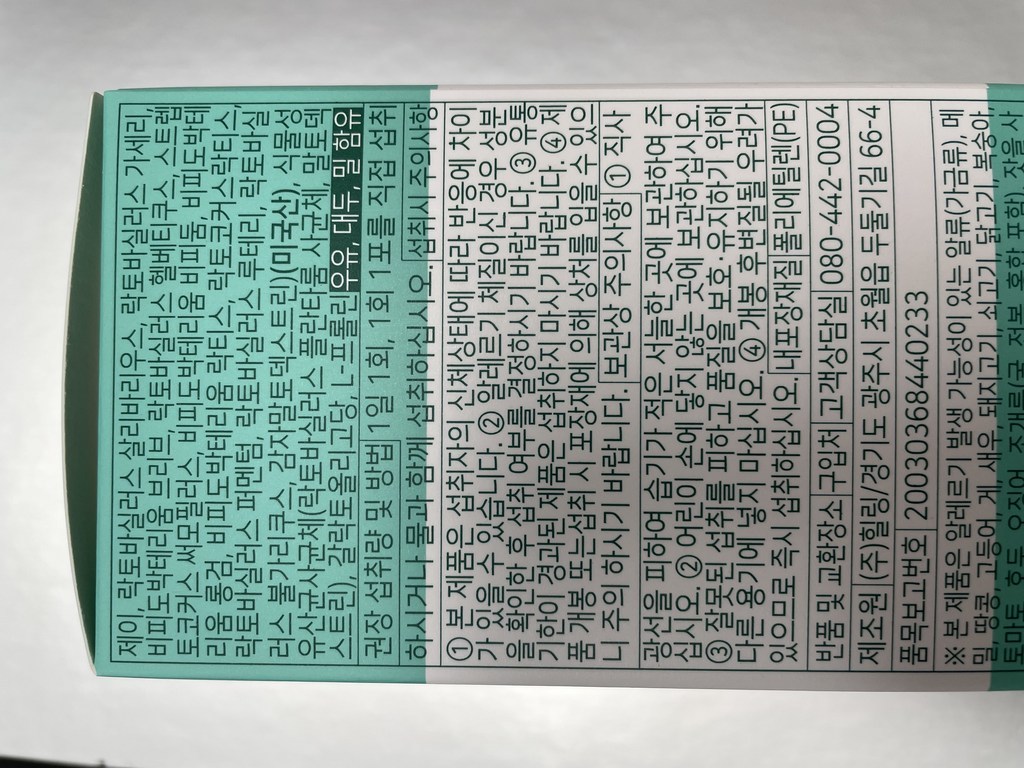 제이, 락토바실러스 살리바리우스, 락토바실러스 가세리,
비피도박테리움 브리브, 락토바실러스 헬베티쿠스, 스트렙
토코커스 써모필러스, 비피도박테리움 비피덤, 비피도박테
리움 롱검, 비피도박테리움 락티스, 락토코커스 락티스,
락토바실러스 퍼멘텀, 락토바실러스 루테리, 락토바실
러스 불가리쿠스, 감자말토덱스트린)(미국산), 식물성
유산균사균체(락토바실러스 플란타룸 사균체, 말토덱
스트린), 갈락토올리고당, L-프롤린 우유, 대두, 밀 함유
권장 섭취량 및 방법 1일 1회, 1회 1포를 직접 섭취
하시거나 물과 함께 섭취하십시오. 섭취시 주의사항
① 본 제품은 섭취자의 신체상태에 따라 반응에 차이
가 있을 수 있습니다. ② 알레르기 체질이신 경우 성분
을 확인한 후 섭취 여부를 결정하시기 바랍니다. ③ 유통
기한이 경과된 제품은 섭취하지 마시기 바랍니다. ④ 제
품 개봉 또는 섭취 시 포장재에 의해 상처를 입을 수 있으
니 주의 하시기 바랍니다. 보관상 주의사항 ① 직사
광선을 피하여 습기가 적은 서늘한 곳에 보관하여 주
십시오. ② 어린이 손에 닿지 않는 곳에 보관하십시오.
③ 잘못된 섭취를 피하고 품질을 보호·유지하기 위해
다른 용기에 넣지 마십시오. ④ 개봉 후 변질될 우려가
있으므로 즉시 섭취하십시오. 내포장재질 폴리에틸렌(PE)
반품 및 교환장소 구입처 고객상담실 080-442-0004
제조원 (주)힐링/경기도 광주시 초월읍 두둘기길 66-4
품목보고번호 20030368440233
※ 본 제품은 알레르기 발생 가능성이 있는 알류(가금류), 메
밀, 땅콩, 고등어, 게, 새우, 돼지고기, 쇠고기, 닭고기, 복숭아,
토마토, 호두, 오징어, 조개류(굴, 전복, 홍합 포함), 잣을 사